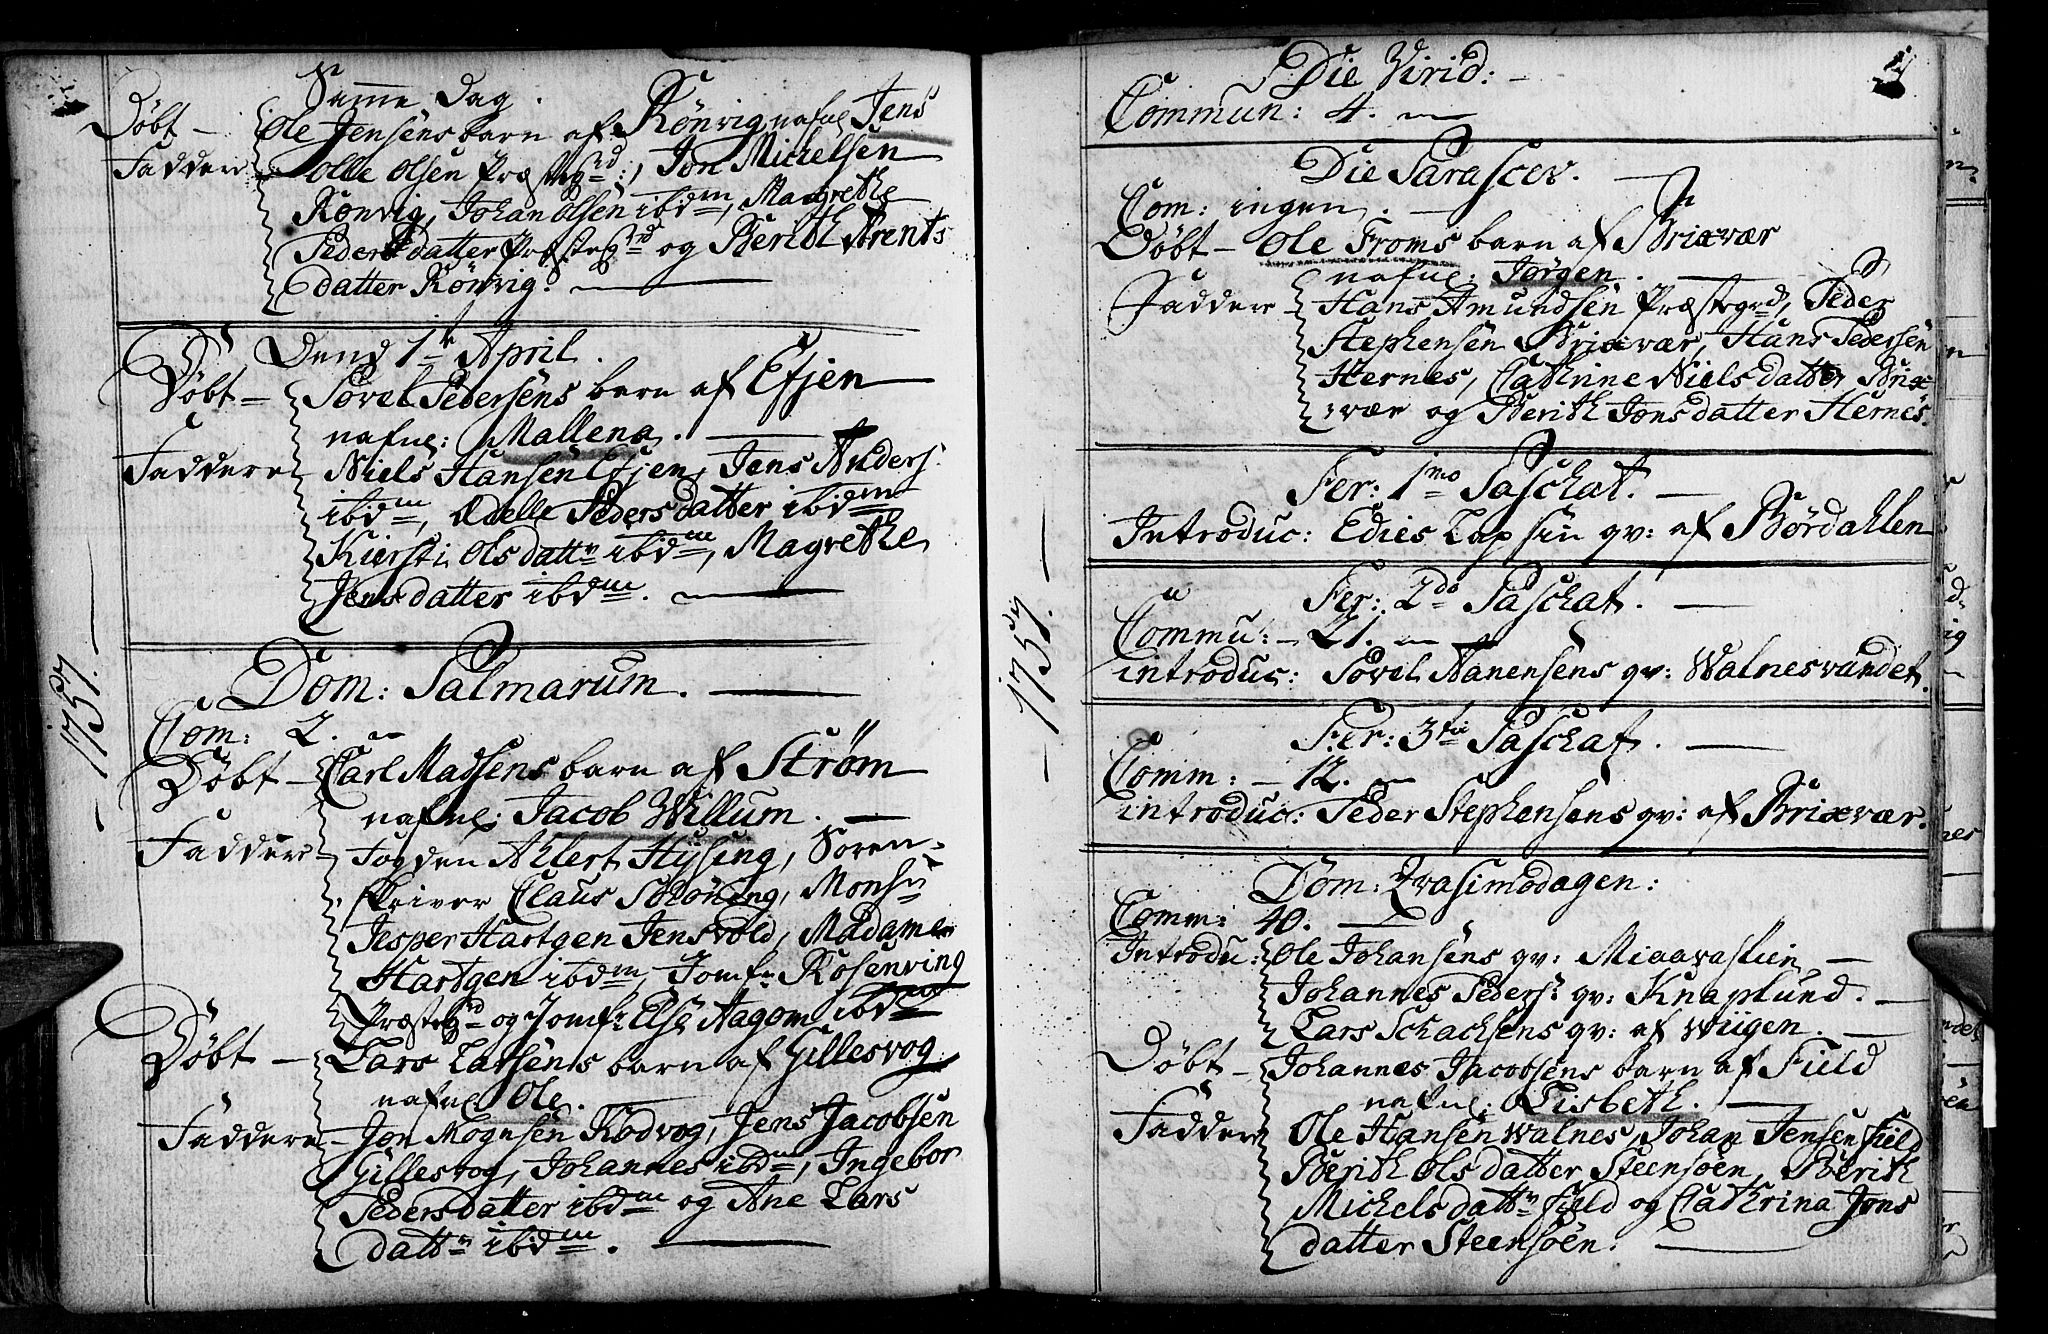 Samme Dag.
Døbt — Ole Jensens barn af Rønvig nafnl Jens
Faddere — Olle Olsen Præstegrd:, Jon Michelsen
Rønvig, Johan Olsen ibdm, Magrethe
Pedersdatter Præstegrd og Berith Arents
datter Rønvig. —
Dend 1te April.
Døbt — Povel Pedersens barn af Efjen
nafnl: Mallena. —
Faddere Niels Hansen Efjen, Jens Anders:
ibdm, Ædelle Pedersdatter ibdm
Kiersti Olsdattr ibdm, Magrethe
Jensdatter ibdm. —
— 1757. —
Dom: Palmarum. —
Com: 2. —
Døbt — Carl Massens barn af Strøm
nafnl: Jacob Willum. —
Faddere — Fogden Ahlert Hysing, Soren-
skriver Claus Schöning, Monsr
Jesper Hartgen Jensvold, Madame
Hartgen ibdm, Jomfr Rosenving
Præstegrd og Jomfr Else Aagom ibdm
Døbt — Lars Larsens barn af Gillesvog
nafnl Ole. —
Faddere — Jon Mogensen Kodvog, Jens Jacobsen
Gillesvog, Johannes ibdm, Ingebor
Pedersdatter ibdm og Ane Lars
dattr ibdm. —
Die Virid: —
Commun: 4. —
Die Parascev. —
Com: ingen. —
Døbt — Ole Froms barn af Brixvær
nafnl: Jørgen. —
Faddere — Hans Amundsen Præstegrd, Peder
Stephensen Brixvær, Hans Pedersen
Hernes, Cathrine Nielsdatter Brix-
vær og Berith Jonsdatter Hernes.
Fer: 1mo Paschat. —
Introduc: Edies Lapsin qv: af Børdahlen
Fer: 2do Paschat. —
Commu: — 21. —
introduc: Povel Aanensens qv: Walnesvandet.
— 1757. —
Fer: 3tie Paschat. —
Comm: — 12. —
introduc: Peder Stephensens qv: af Brixvær.
Dom: Qvasimodagen:
Comm: 40. —
Introdu: Ole Johansens qv: Miaavastien —
Johannes Peders: qv: Knaplund. —
Lars Schachsens qv: af Wiigen. —
Døbt — Johannes Jacobsens barn af Field
nafnl: Lisbeth. —
Faddere Ole Hansen Walnes, Johan Jensen Field
Berith Olsdatter Steensøen, Berith
Michelsdattr Field og Cathrina Jons
datter Steensøen. —